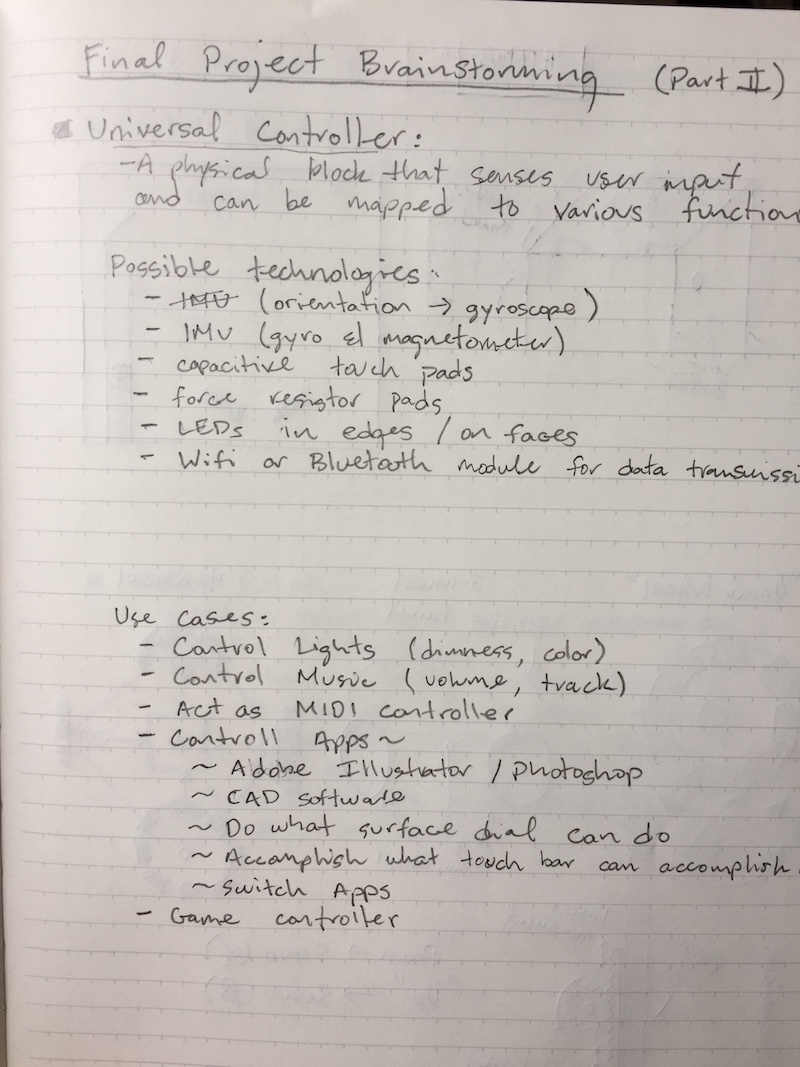 Final Project Brainstorming (Part II)
Universal Controller:
- A physical block that senses user input
and can be mapped to various function
Possible technologies:
- IMU (orientation → gyroscope)
- IMU (gyro & magnetometer)
- capacitive touch pads
- force resistor pads
- LEDs in edges / on faces
- Wifi or Bluetooth module for data transmissi
Use cases:
- Control Lights (dimness, color)
- Control Music (volume, track)
- Act as MIDI controller
- Controll Apps ~
~ Adobe Illustrator / Photoshop
~ CAD software
~ Do what surface dial can do
~ Accomplish what touch bar can accomplish.
~ Switch Apps
- Game controller